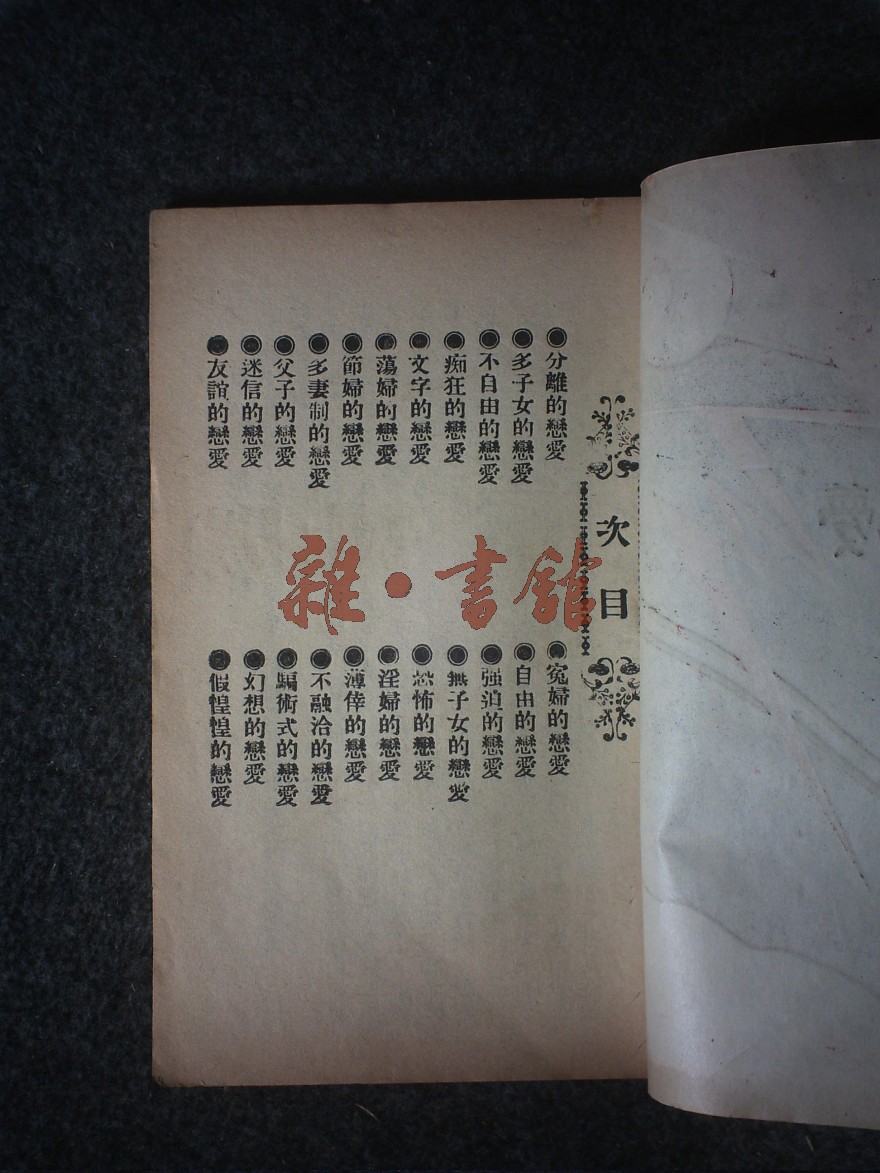 次目
分離的戀愛
多子女的戀愛
不自由的戀愛
痴狂的戀愛
文字的戀愛
蕩婦的戀愛
節婦的戀愛
多妻制的戀愛
父子的戀愛
迷信的戀愛
友誼的戀愛
寃婦的戀愛
自由的戀愛
强迫的戀愛
無子女的戀愛
恐怖的戀愛
淫婦的戀愛
薄倖的戀愛
不融洽的戀愛
騙術式的戀愛
幻想的戀愛
假惶惶的戀愛
雜·書館